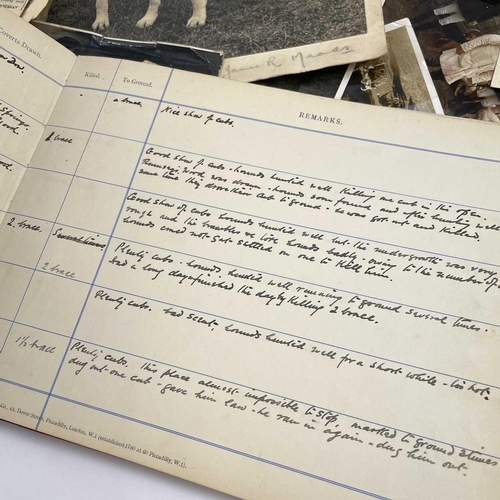 Coverts Drawn.
Killed.
To Ground.
REMARKS.
a brace
Nice show of cubs.
1 brace
Good show of cubs - hounds hunted well killing one cub in the open.
Ramsey Wood was drawn - hounds soon found and after hunting well
some time they drove their cub to ground - he was got out and killed.
Good show of cubs hounds hunted well but the undergrowth was very
rough and the brambles tore hounds badly - owing to the number of
hounds could not get settled on one to kill him.
2 brace.
Plenty cubs - hounds hunted well running to ground several times.
had a long day & finished the day by killing 2 brace.
2 brace
Plenty cubs. bad scent, hounds hunted well for a short while - but not
1½ brace
Plenty cubs. This place almost impossible to stop, marked to ground 3 times
dug out one cub - gave him law - he ran in again - dug him out.
Co., 44, Dover Street, Piccadilly, London, W.1 (established 1740 at 60 Piccadilly, W.1).
James R. Meads